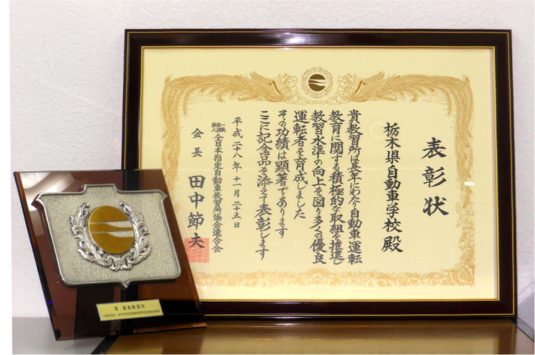 表彰状
栃木県自動車学校 殿
貴教習所は長年にわたり自動車運転
教育に関する積極的な取組を推進し
教習水準の向上を図り多くの優良
運転者を育成しました
その功績は顕著であります
ここに記念品を添えて表彰します
平成二十八年十一月二十五日
一般社団法人 全日本指定自動車教習所協会連合会
会長 田中節夫